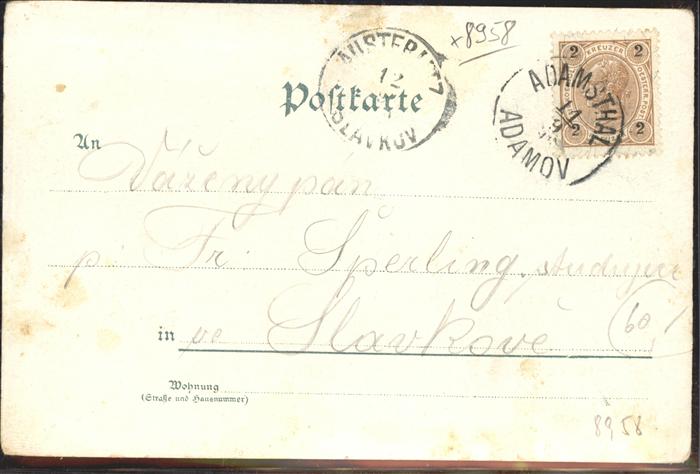 ×8958
AUSTERLITZ
12
SLAVKOV
2 KREUZER 2
OESTERR. POST
2 2
ADAMSTHAL
11
9
ADAMOV
Postkarte
An Vážený pán
p. Fr. Sperling, studující
in ve Slavkově
60
Wohnung
(Straße und Hausnummer)
8958